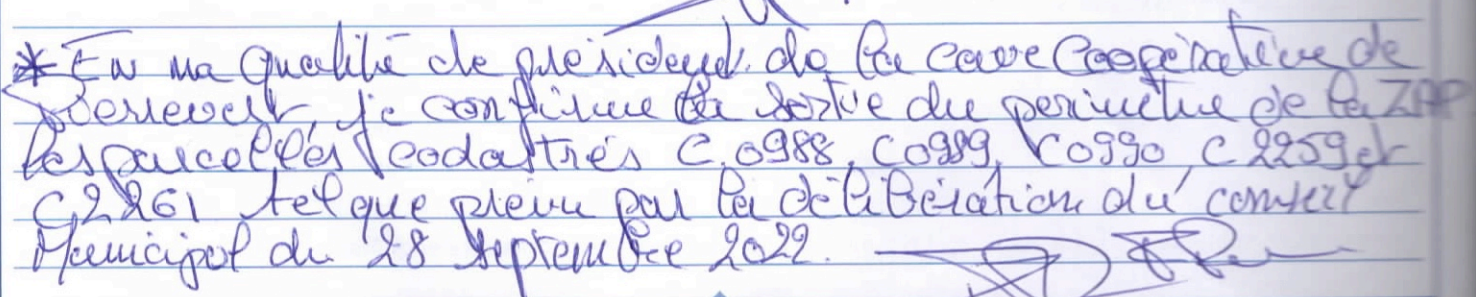 * En ma qualité de président de la cave Coopérative de
Pierrevert, je confirme la sortie du perimetre de la ZAP
les parcelles codastrés C 0988, C0989, C0990, C 2259 et
C2261 tel que prévu par la délibération du conseil
Municipal du 28 septembre 2022.